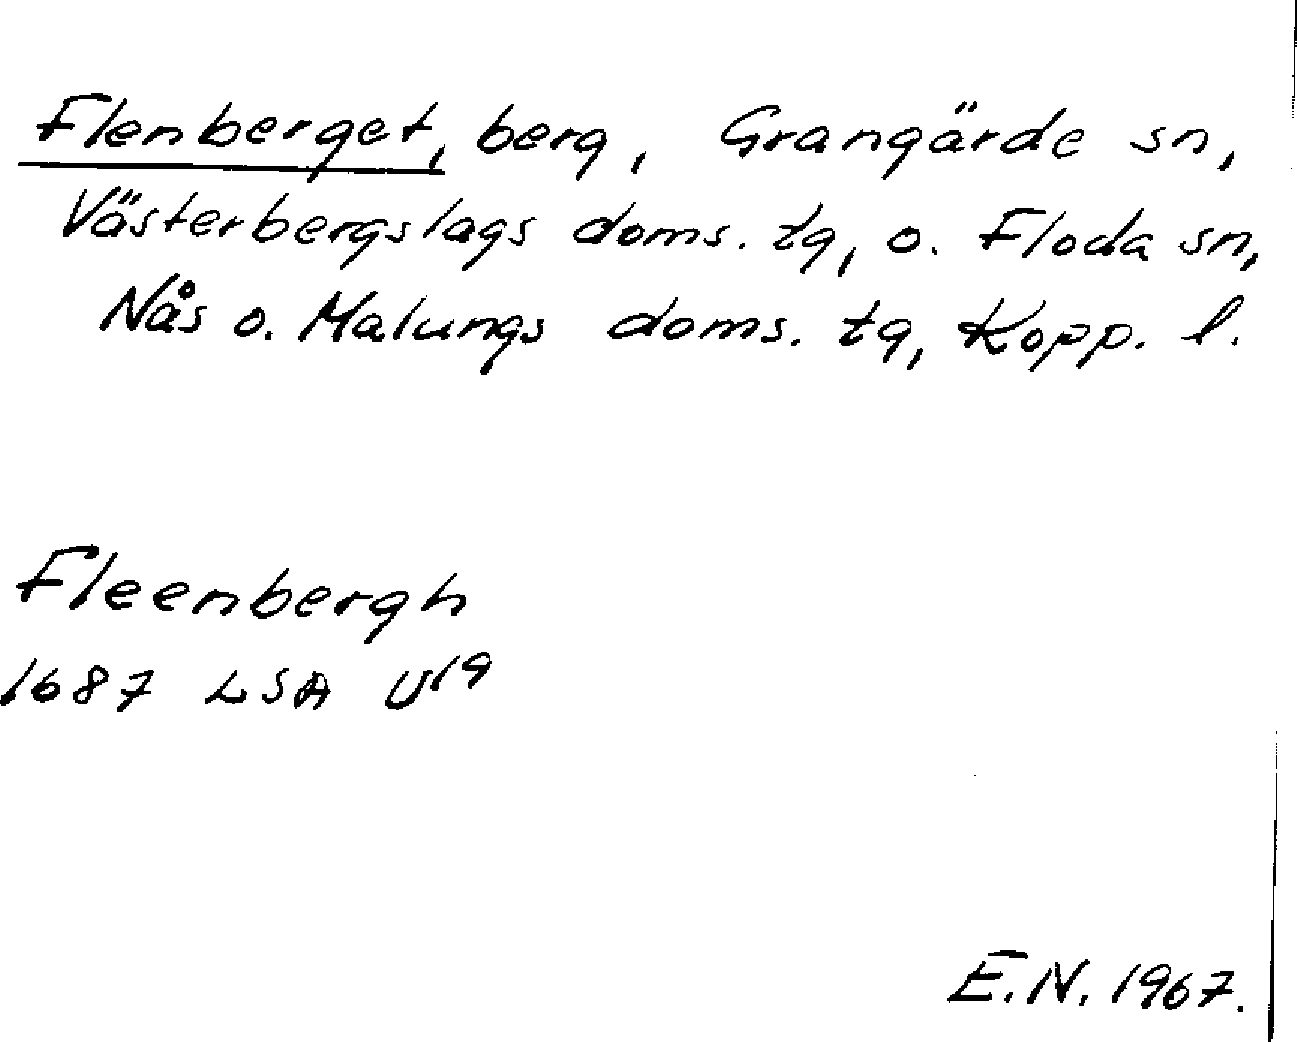 Flenberget, berg, Grangärde sn,
Västerbergslags doms. tg, o. Floda sn,
Nås o. Malungs doms. tg, Kopp. l.
Fleenbergh
1687 LSA U19
E.N. 1967.